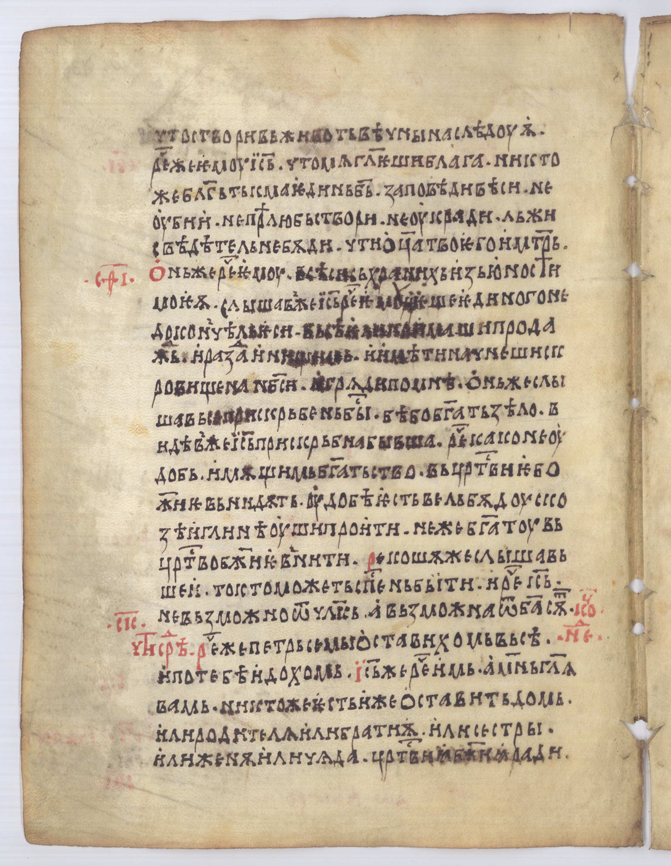 что створи вь животь вѣчнꙑ наслѣдоую ·
рⷱ҇е же ѥмоу і҃сь · что мѧ глѥши блага · никто
же бл҃гь тькмо ѥдинь б҃ь · заповѣди вѣси · не
оубиі · не прѣлюбꙑ створи · не оукради · льжи
свѣдѣтель не бѫди · чти ѡц҃а твоѥго и мт҃рь ·
· с҃ф҃і · Онь же рⷱ҇е ѥмоу · вьсѣ си схранихь изь юности
моѥѧ · слꙑшавь же і҃сь рⷱ҇е ѥмоу · ѥще ѥдиного не
доконьчѣль ѥси · вьсѣ ѥлико имаши прода
жь · и раздаи нищимь · и имѣти начнеши ск
ровище на нб҃си · и грѧди по мнѣ · Онь же слꙑ
шавь прискрьбень бꙑⷭ҇ · бѣ бо богать зѣло · в
идѣвь же і҃сь прискрьбна бꙑвша · рⷱ҇е како не оу
добь · имѫщимь бг҃атьство · вь црⷭ҇твиѥ бо
ж҃иѥ вьнидѫть · оудобѣ ѥсть вельбѫдоу скво
зѣ иглинѣ оуши проити · неже бг҃атоу вь
црⷭ҇тво бж҃иѥ вь҃нити · рекошѧ же слꙑшавь
шеі · то кто можеть сп҃ень бꙑти · и рⷱ҇е і҃сь ·
невьзможно ѿ чл҃кь · а вьзможна ѿ б҃а сѫⷮ · кⷪ҇ць
· с҃п҃с · · н҃е ·
чт҃и срⷣѣ · рⷱ҇е же петрь се мꙑ ѡставихомь вьсѣ ·
и по тебѣ идохомь · і҃сь же рⷱ҇е имь · амн҃ь гл҃ѧ
вамь · никто же ѥсть иже ѡставить домь ·
или родителѧ или братиѭ · или сестрꙑ ·
или женѫ или чѧда · црⷭ҇твиꙗ бж҃иꙗ ради ·